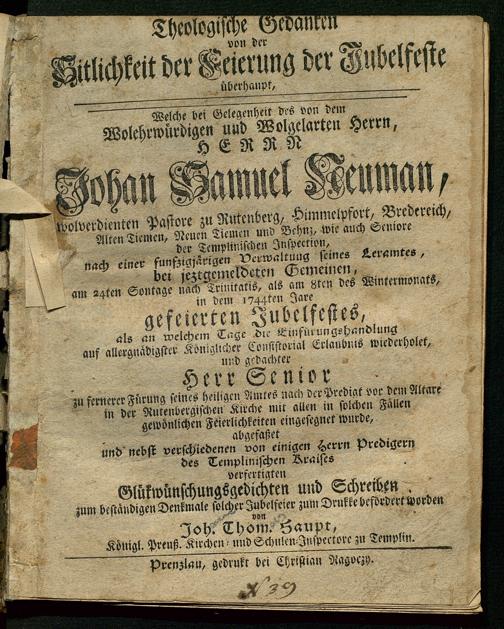 Theologische Gedanken
von der
Sitlichkeit der Feierung der Jubelfeste
überhaupt,
Welche bei Gelegenheit des von dem
Wolehrwürdigen und Wolgelarten Herrn,
HERRN
Johan Samuel Neuman,
wolverdienten Pastore zu Rutenberg, Himmelpfort, Bredereich,
Alten Tiemen, Neuen Tiemen und Behnz, wie auch Seniore
der Templinischen Inspection,
nach einer funfzigjärigen Verwaltung seines Leramtes,
bei jeztgemeldeten Gemeinen,
am 24ten Sontage nach Trinitatis, als am 8ten des Wintermonats,
in dem 1744ten Jare
gefeierten Jubelfestes,
als an welchem Tage die Einfürungshandlung
auf allergnädigster Königlicher Consistorial Erlaubnis wiederholet,
und gedachter
Herr Senior
zu fernerer Fürung seines heiligen Amtes nach der Predigt vor dem Altare
in der Rutenbergischen Kirche mit allen in solchen Fällen
gewönlichen Feierlichkeiten eingesegnet wurde,
abgefaßet
und nebst verschiedenen von einigen Herrn Predigern
des Templinischen Kraises
verfertigten
Glükwünschungsgedichten und Schreiben
zum beständigen Denkmale solcher Jubelfeier zum Drukke befördert worden
von
Joh. Thom. Haupt,
Königl. Preuß. Kirchen- und Schulen-Inspectore zu Templin.
Prenzlau, gedrukt bei Christian Ragoczy.
N 39